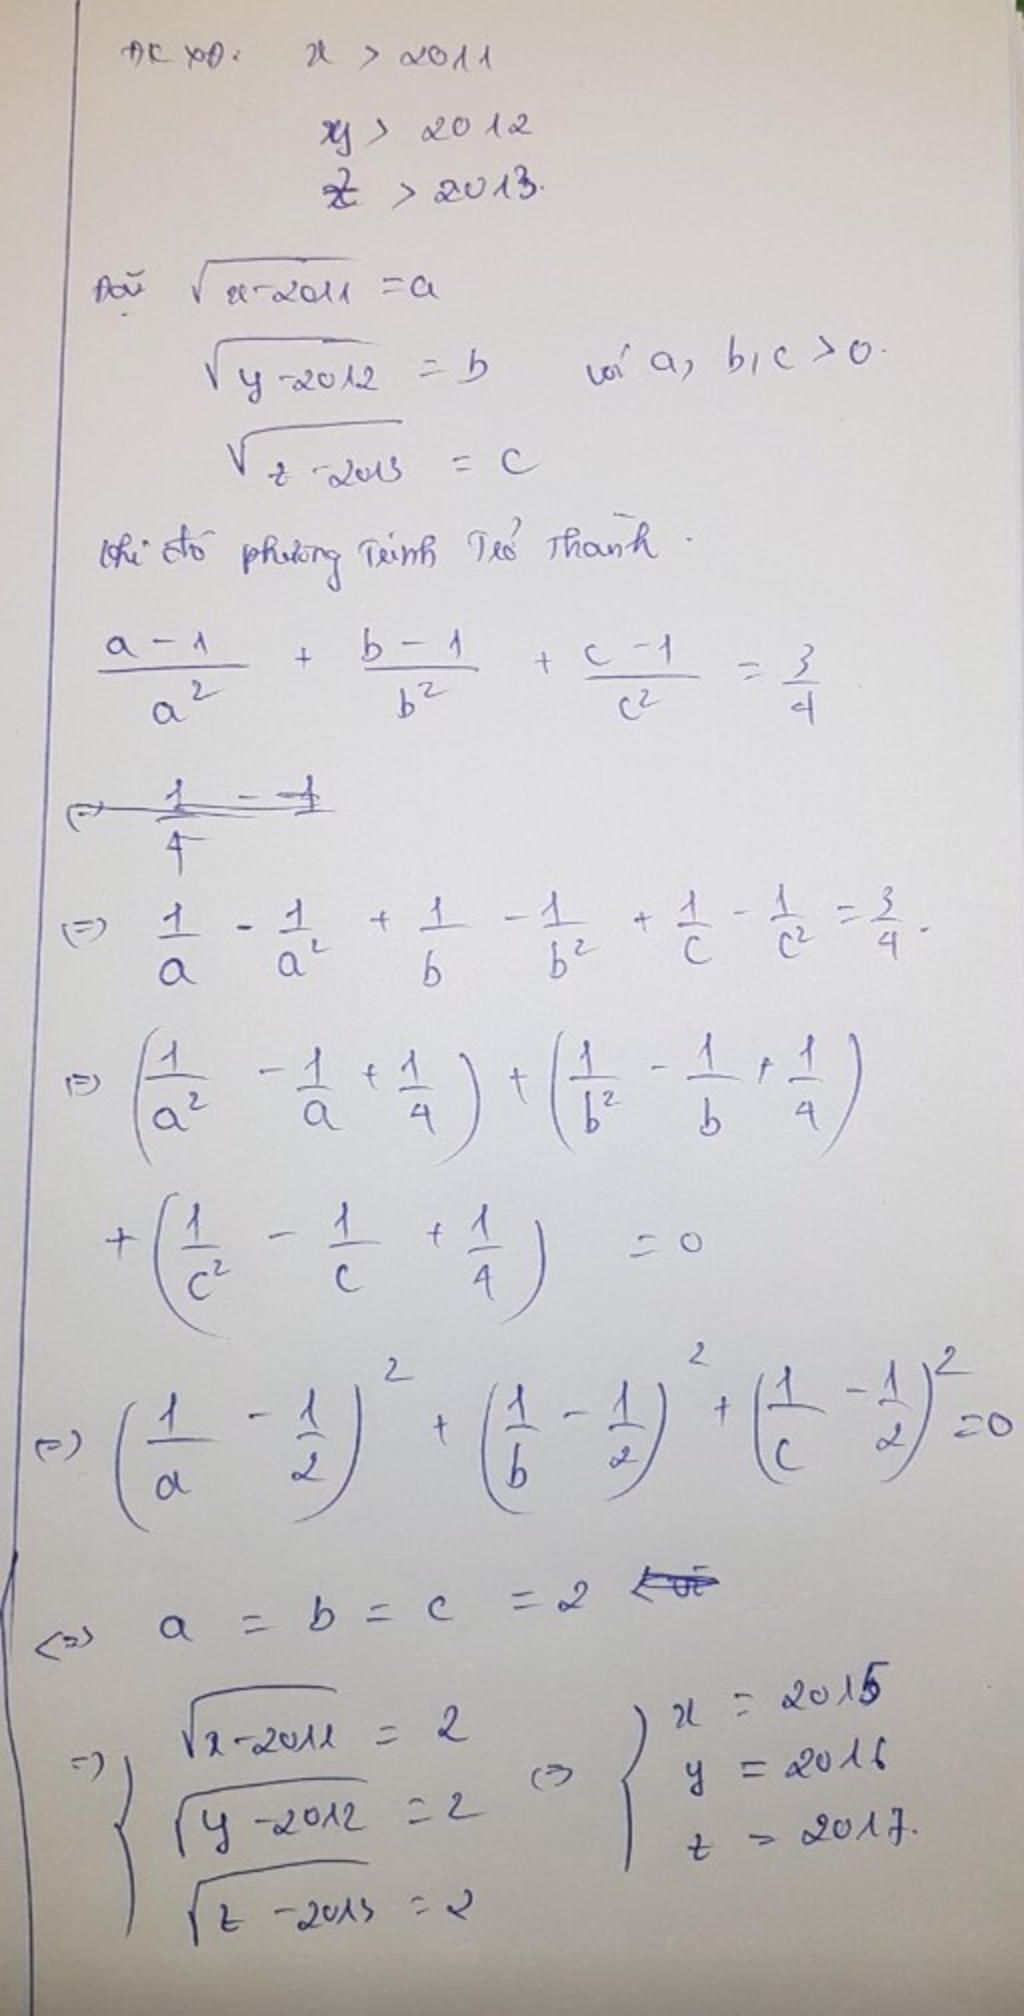 ĐKXĐ: x > 2011
y > 2012
z > 2013.
Đặt √(x-2011) = a
√(y-2012) = b với a, b, c > 0.
√(z-2013) = c
Khi đó phương trình trở thành.
(a-1)/a² + (b-1)/b² + (c-1)/c² = 3/4
(=) 1/4 - 1
(=) 1/a - 1/a² + 1/b - 1/b² + 1/c - 1/c² = 3/4.
(=) (1/a² - 1/a + 1/4) + (1/b² - 1/b + 1/4)
+ (1/c² - 1/c + 1/4) = 0
(=) (1/a - 1/2)² + (1/b - 1/2)² + (1/c - 1/2)² = 0
<=> a = b = c = 2
=) { √(x-2011) = 2 (=) { x = 2015
√(y-2012) = 2 y = 2016
√(z-2013) = 2 z = 2017.